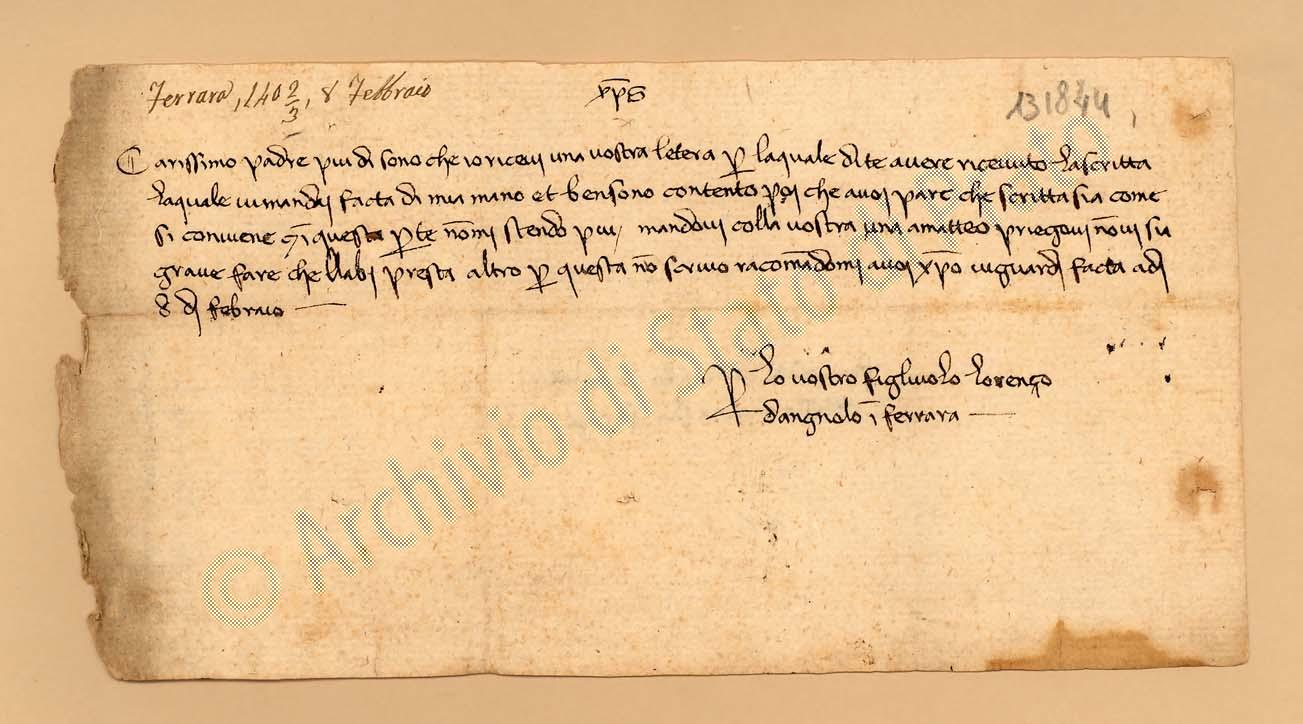 Ferrara, 140 2/3, 8 Febbraio
xp̄s
131844
Carissimo padre piu di sono che io ricevi una vostra letera ꝑ laquale dite avere ricevuto la scritta
laquale vi mandai facta di mia mano et ben sono contento poi che avoi pare che scritta sia come
si conviene questa ꝑte nōmi stendo piu mandovi colla vostra una amatteo priegovi nōvi sia
grave fare che llabi presta altro ꝑ questa nō scrivo racomādomi avoi xp̄o viguardi facta adi
8 di febraio
ꝑ lo vostro figliuolo lorenço
dangnolo ī ferrara
© Archivio di Stato di Prato